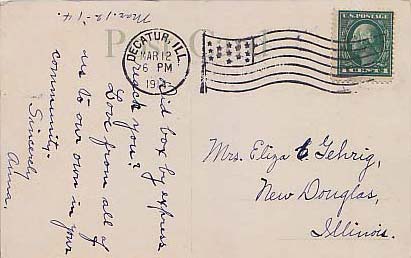 Mar. 12-'14.
Post Card
DECATUR, ILL.
MAR 12
6 PM
U.S. POSTAGE
1 CENT 1
Did box by express
reach you?
Love from all of
us to our own in your
community.
Sincerely
Anna.
Mrs. Eliza C. Gehrig,
New Douglas,
Illinois.